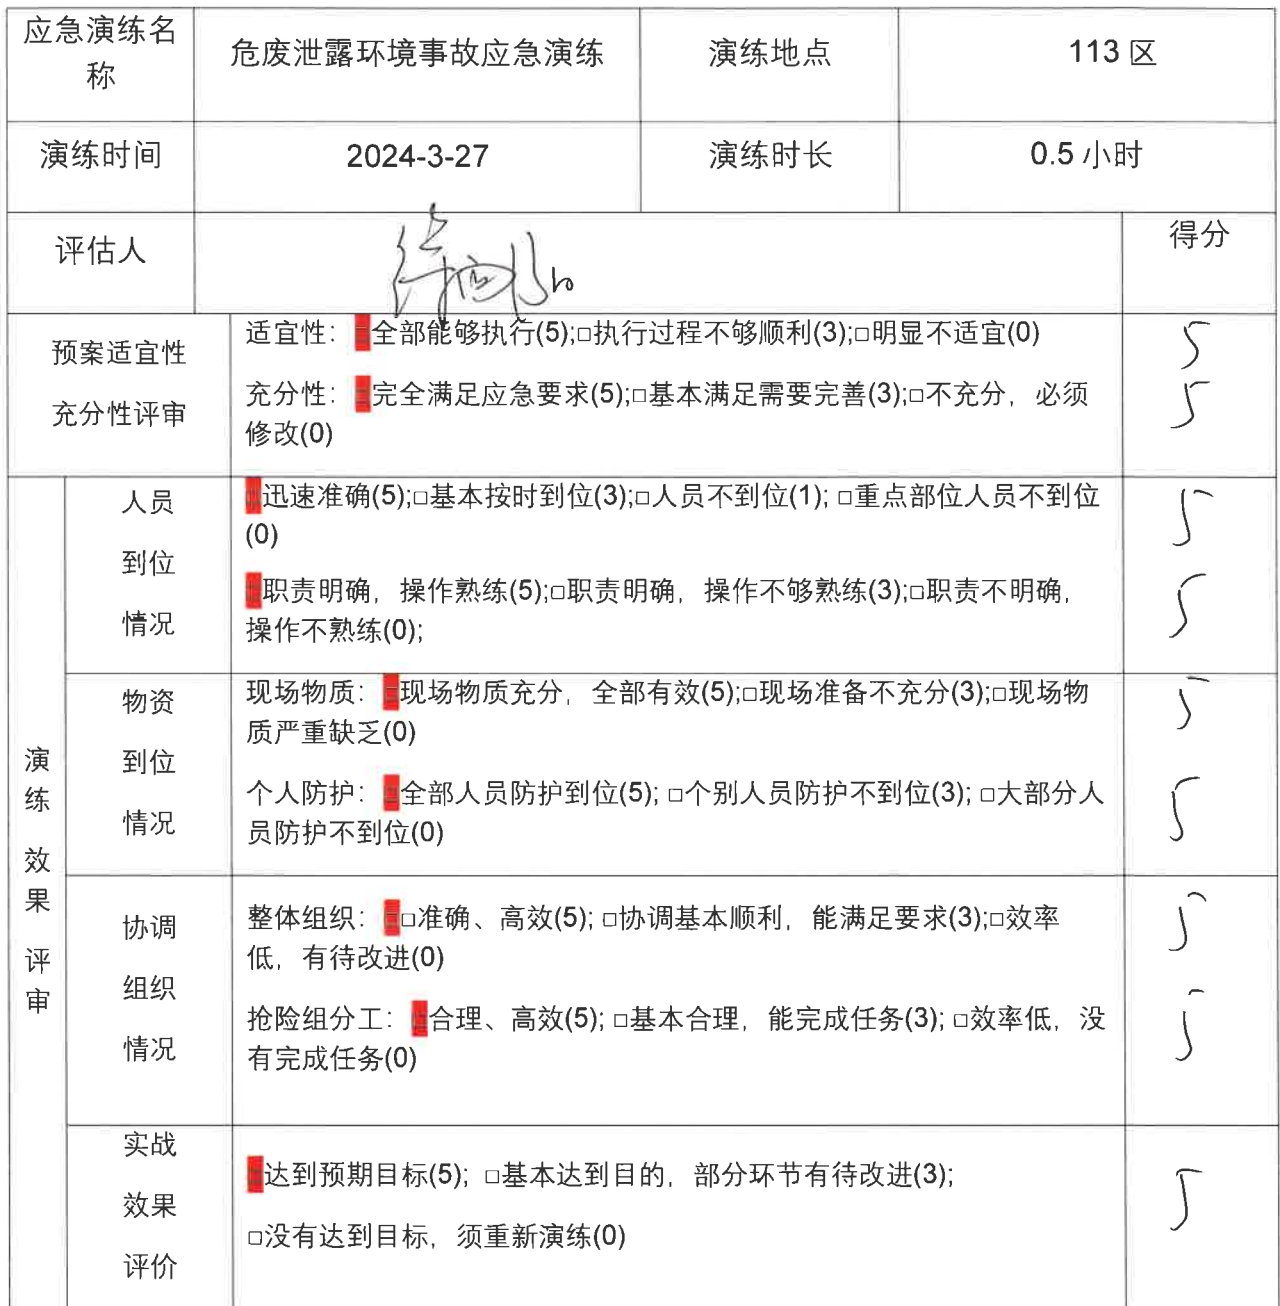 应急演练名称 危废泄露环境事故应急演练 演练地点 113 区
演练时间 2024-3-27 演练时长 0.5 小时
评估人 得分
预案适宜性
充分性评审
适宜性：全部能够执行(5);□执行过程不够顺利(3);□明显不适宜(0) 5
充分性：完全满足应急要求(5);□基本满足需要完善(3);□不充分，必须 5
修改(0)
演练效果评审
人员
到位
情况
迅速准确(5);□基本按时到位(3);□人员不到位(1); □重点部位人员不到位 5
(0)
职责明确，操作熟练(5);□职责明确，操作不够熟练(3);□职责不明确， 5
操作不熟练(0);
物资
到位
情况
现场物质：现场物质充分，全部有效(5);□现场准备不充分(3);□现场物 5
质严重缺乏(0)
个人防护：全部人员防护到位(5); □个别人员防护不到位(3); □大部分人 5
员防护不到位(0)
协调
组织
情况
整体组织：□准确、高效(5); □协调基本顺利，能满足要求(3);□效率 5
低，有待改进(0)
抢险组分工：合理、高效(5); □基本合理，能完成任务(3); □效率低，没 5
有完成任务(0)
实战
效果
评价
达到预期目标(5); □基本达到目的，部分环节有待改进(3); 5
□没有达到目标，须重新演练(0)